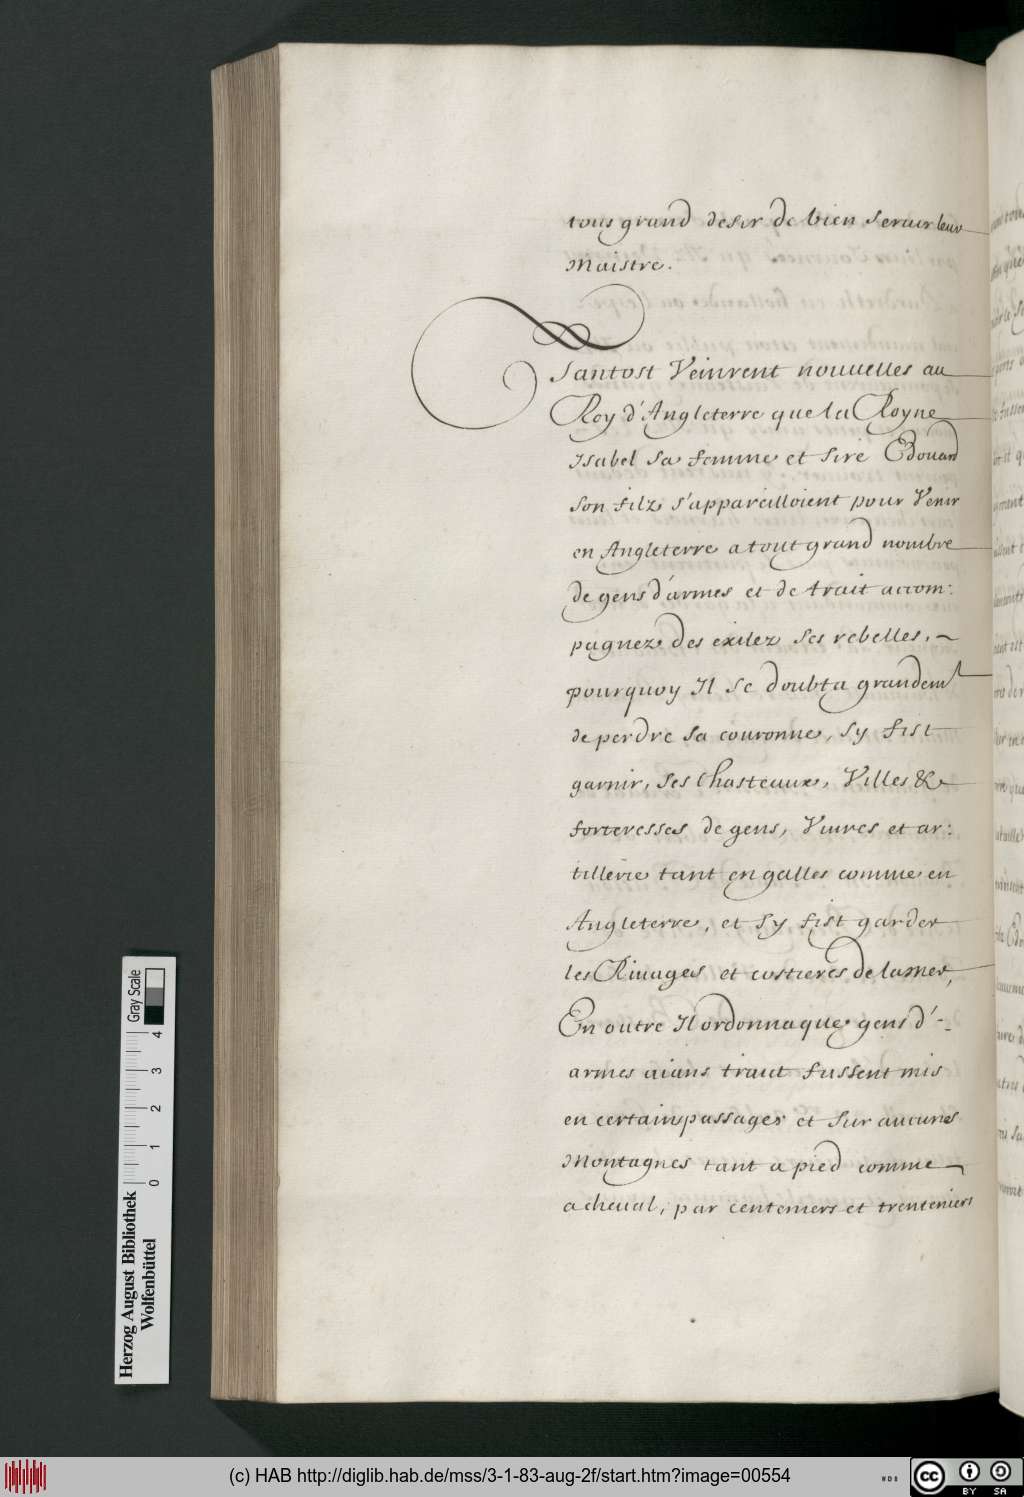 tous grand desir de bien seruir leur
Maistre.
Santost Veinrent nouuelles au
Roy d'Angleterre que la Royne
Isabel sa femme et sire Edouard
son filz s'appareilloient pour Venir
en Angleterre a tout grand nombre
de gens d'armes et de trait accom:
pagnez des exilez ses rebelles,
pourquoy Il se doubta grandemt
de perdre sa couronne, sy fist
garnir, ses Chasteaux, Villes &
forteresses de gens, Viures et ar:
tillerie tant en galles comme en
Angleterre, et sy fist garder
les Riuages et costieres de la mer,
En outre Il ordonna que gens d'-
armes aians traict fussent mis
en certains passages et sur aucunes
Montagnes tant a pied comme
a cheual, par centeniers et trenteniers
Gray Scale
0 1 2 3 4
Herzog August Bibliothek
Wolfenbüttel
(c) HAB http://diglib.hab.de/mss/3-1-83-aug-2f/start.htm?image=00554
WDB
cc
BY SA